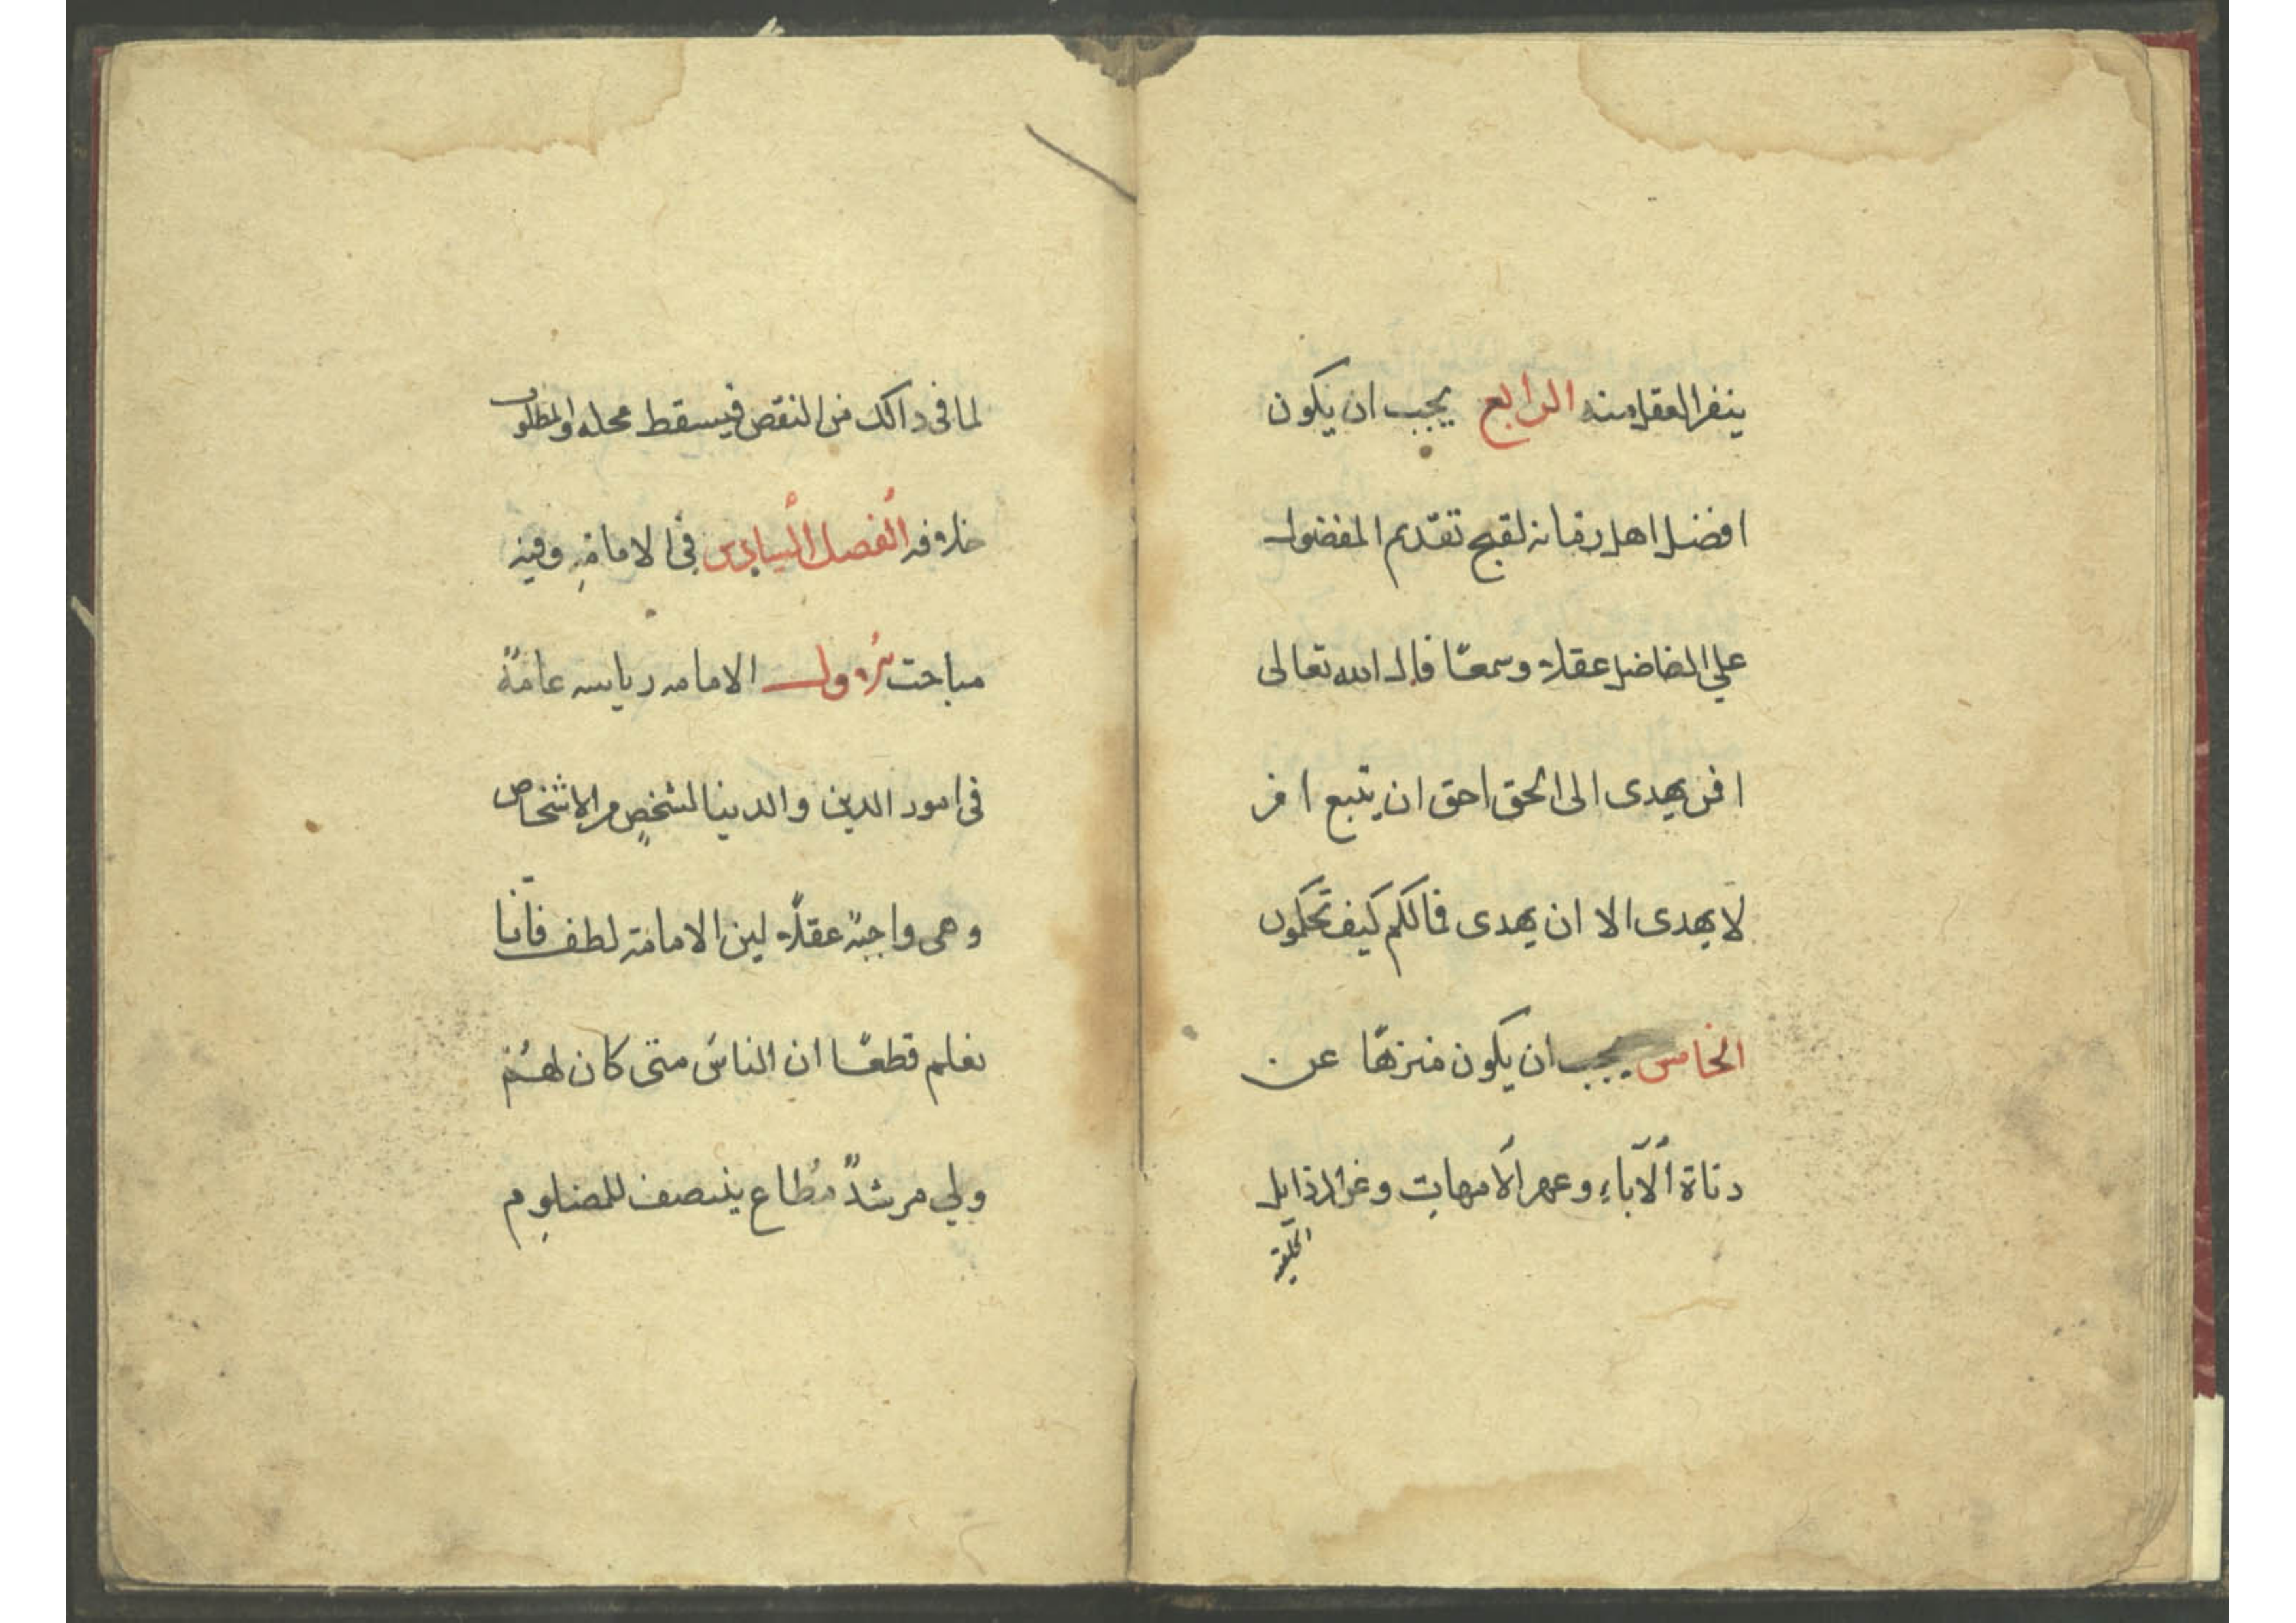 ينفر العقل منه الرابع يجب ان يكون
افضل اهل زمانه لقبح تقديم المفضول
علي الفاضل عقلا وسمعًا قال الله تعالى
افمن يهدى الى الحق احق ان يتبع امن
لا يهدى الا ان يهدى فمالكم كيف تحكمون
الخامس يجب ان يكون منزهًا عن
دناة الآباءِ وعهر الأمهات وعن الرذايل
الخلقية
لما فى دالك من النقص فيسقط محله والمطلوب
خلافه الفصل السادس فى الامامةِ وفيه
مباحث الاول الامامه رياسه عامةً
فى امور الدين والدينا لشخصٍ من الاشخاص
وهى واجبة عقلاً لين الامامة لطف فانّا
نعلم قطعًا ان الناسَ متى كان لهم
ولي مرشدً مُطاع ينتصف للمضلوم